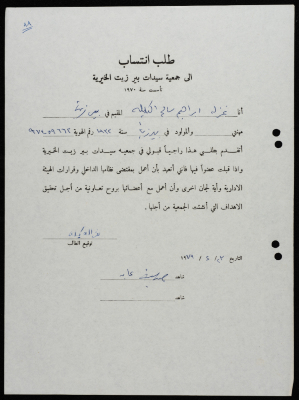 ٨٩
طلب انتساب
الى جمعية سيدات بير زيت الخيرية
تأسست سنة ١٩٧٠
أنا ابراهيم سالم المقيم في بير زيت
مهنتي والمولود في بيرزيت سنة ١٩٢٢ رقم الهوية ٩٧٤٠٥٩٦٦٢
أتقدم بطلبي هذا راجياً قبولي في جمعية سيدات بير زيت الخيرية
واذا قبلت عضواً فيها فاني أتعهد بأن أعمل بمقتضى نظامها الداخلي وقرارات الهيئة
الادارية وأية لجان اخرى وأن أعمل مع أعضائها بروح تعاونية من أجل تحقيق
الاهداف التي أنشئت الجمعية من أجلها .
توقيع الطالب
التاريخ ١٩٧٩
شاهد
شاهد